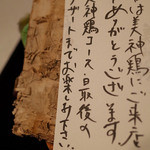 は美神鶏にご来店
めがとうございます
神鶏コース、最後の
デザートまでお楽しみ下さい